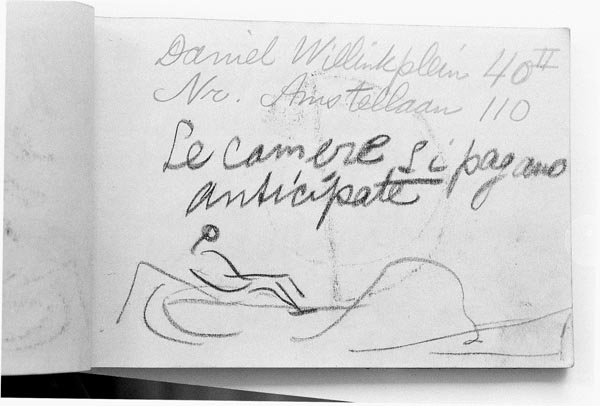 Daniel Willinkplein 40 II
Nr. Amstellaan 110
Le camere si pagano
anticipate